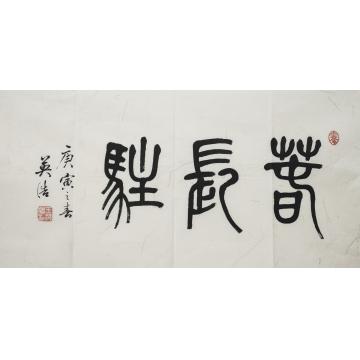 萅長駐
庚寅之春
英浩